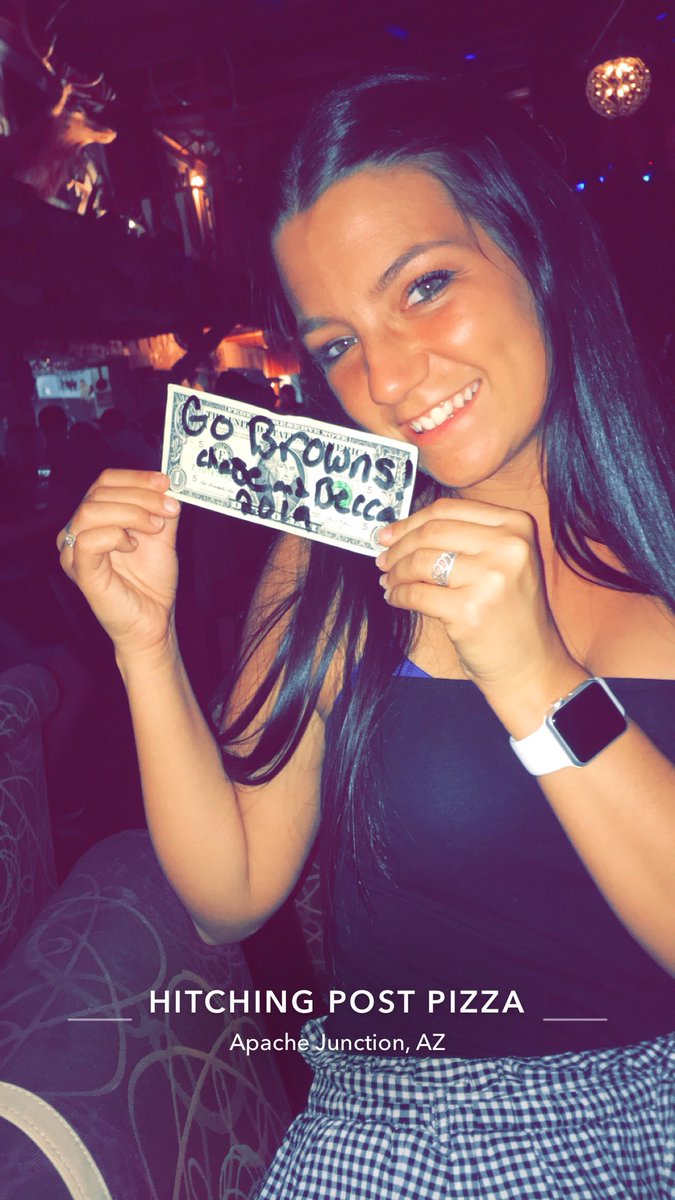 Go Browns!
ChaBe and Becca
2019
1
HITCHING POST PIZZA
Apache Junction, AZ